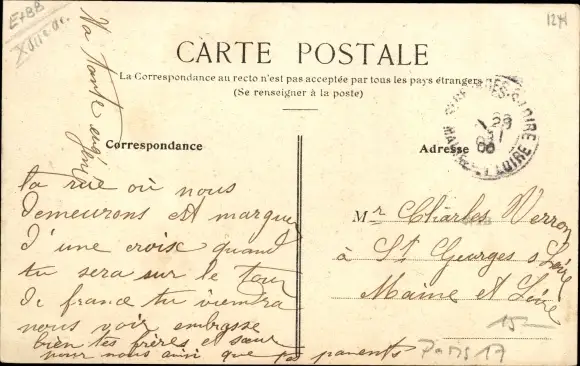 E788
1244
CARTE POSTALE
La Correspondance au recto n'est pas acceptée par tous les pays étrangers
(Se renseigner à la poste)
Correspondance
Adresse
ta rue où nous
demeurons est marquer
d'une croix quand
tu sera sur le tour
de france tu viendra
nous voir embrasse
bien tes frères et sœur
pour nous ainsi que tes parents
Ta tante
Mr Charles Verron
à St Georges s Loire
Maine et Loire
ST GEORGES-S-LOIRE
MAINE-ET-LOIRE
15-
Paris 17